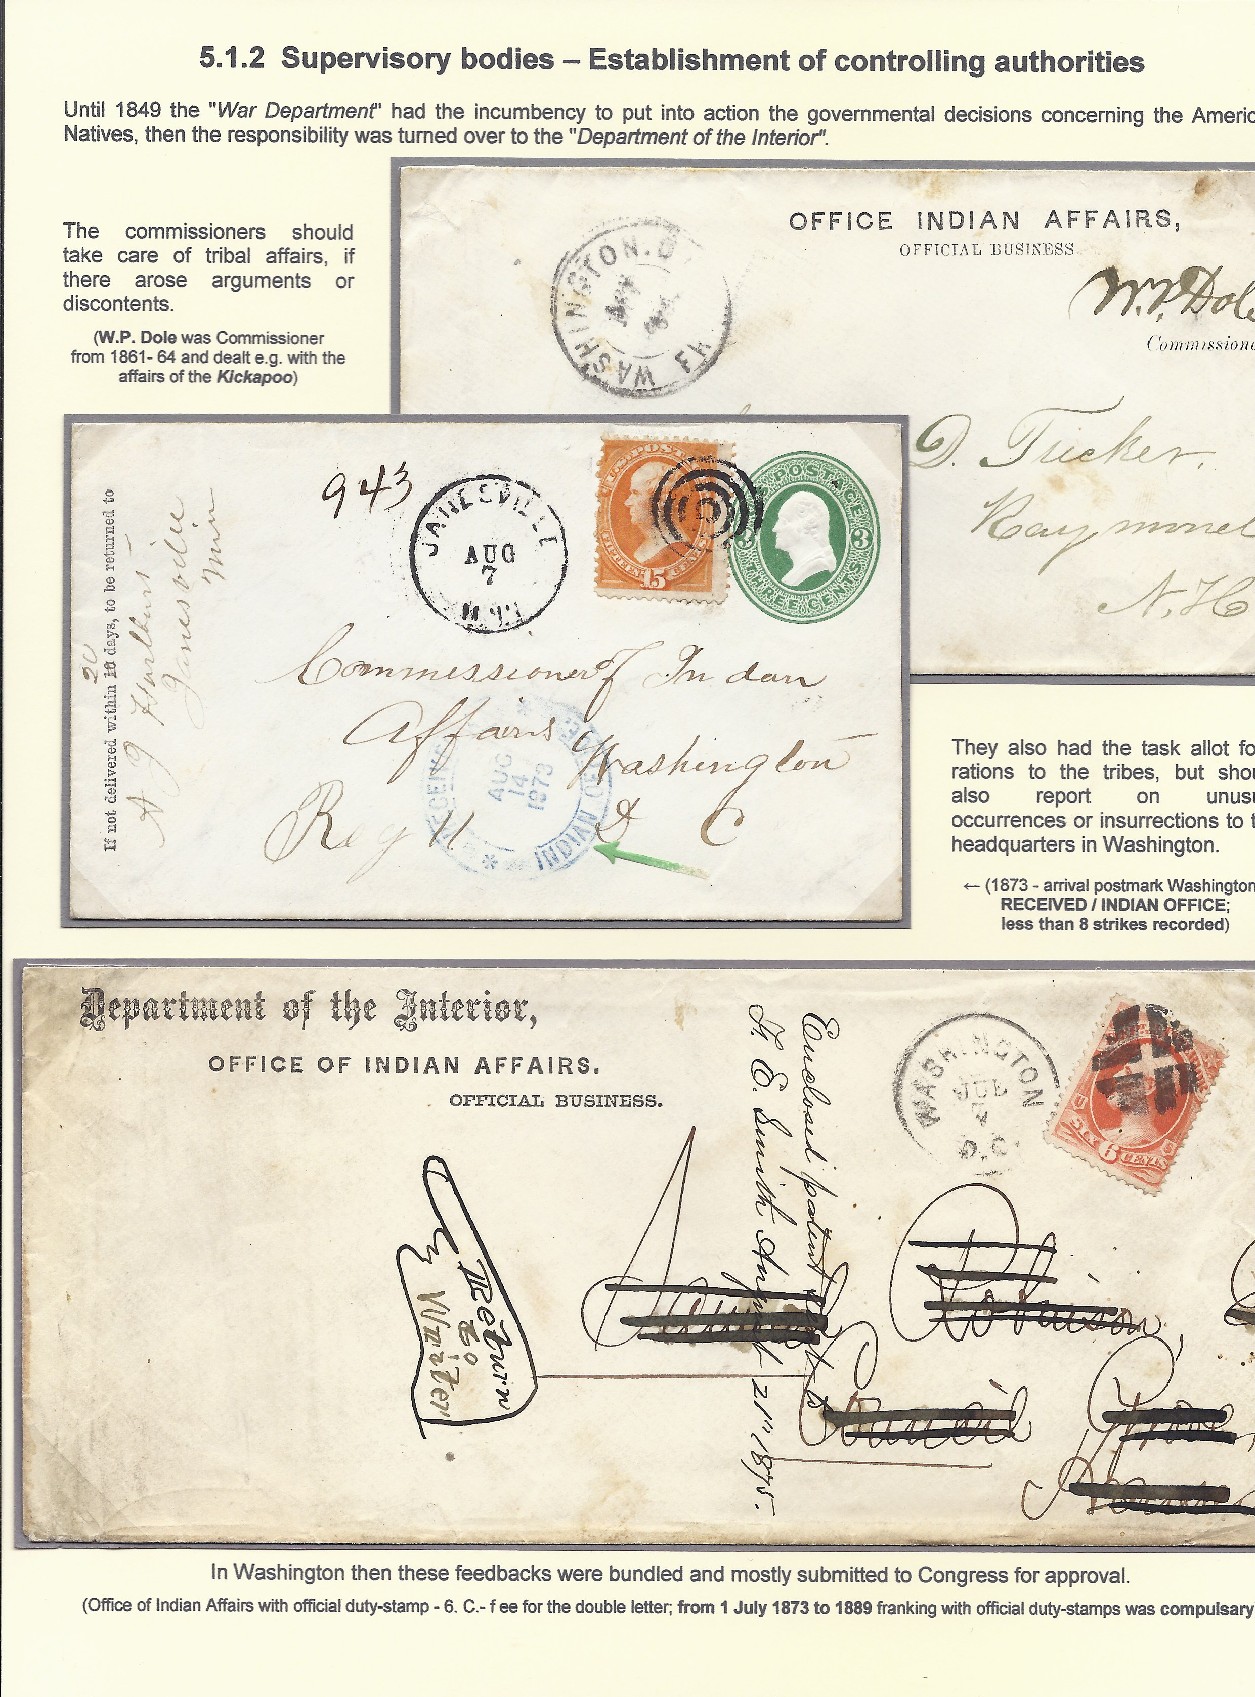 5.1.2 Supervisory bodies – Establishment of controlling authorities
Until 1849 the "War Department" had the incumbency to put into action the governmental decisions concerning the Americ
Natives, then the responsibility was turned over to the "Department of the Interior".
The commissioners should
take care of tribal affairs, if
there arose arguments or
discontents.
(W.P. Dole was Commissioner
from 1861- 64 and dealt e.g. with the
affairs of the Kickapoo)
OFFICE INDIAN AFFAIRS,
OFFICIAL BUSINESS
W.P. Dole
Commissione
WASHINGTON. D.
D. Tucker,
Raymond
N.H
943
JANESVILLE
AUG
7
U.S. POST
FIFTEEN 15 CENTS
U.S. POSTAGE
3 3
THREE CENTS
If not delivered within 10 days, to be returned to
20
Janesville
Min
Commissioner of Indan
Affairs Washington
D C
RECEIVED
AUG
14
1873
INDIAN OFFICE
They also had the task allot fo
rations to the tribes, but shou
also report on unusu
occurrences or insurrections to t
headquarters in Washington.
← (1873 - arrival postmark Washington
RECEIVED / INDIAN OFFICE;
less than 8 strikes recorded)
Department of the Interior,
OFFICE OF INDIAN AFFAIRS.
OFFICIAL BUSINESS.
WASHINGTON
JUL
D.C.
SIX 6 CENTS
Enclosed patent sent to
H. E. Smith August 21" 1875.
Return
to
Writer
Robinson,
Council Grove
In Washington then these feedbacks were bundled and mostly submitted to Congress for approval.
(Office of Indian Affairs with official duty-stamp - 6. C.- f ee for the double letter; from 1 July 1873 to 1889 franking with official duty-stamps was compulsary